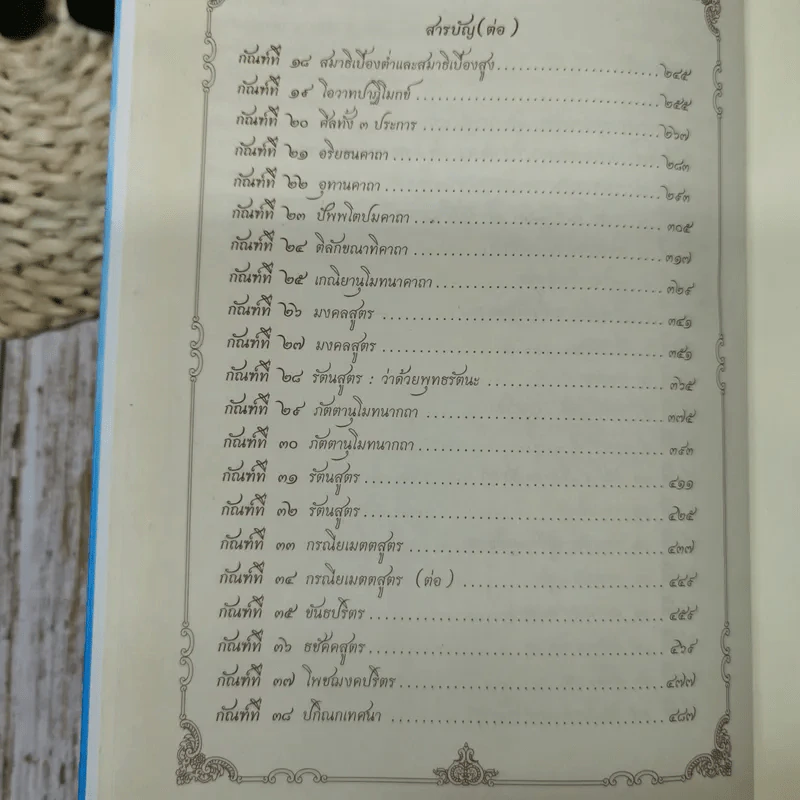 สารบัญ(ต่อ)
กัณฑ์ที่ ๑๘ สมาธิเบื้องต่ำและสมาธิเบื้องสูง ๒๔๕
กัณฑ์ที่ ๑๙ โอวาทปาฏิโมกข์ ๒๕๕
กัณฑ์ที่ ๒๐ ศีลทั้ง ๓ ประการ ๒๖๗
กัณฑ์ที่ ๒๑ อริยธนคาถา ๒๘๓
กัณฑ์ที่ ๒๒ อุทานคาถา ๒๙๓
กัณฑ์ที่ ๒๓ ปัพพโตปมคาถา ๓๐๕
กัณฑ์ที่ ๒๔ ติลักขณาทิคาถา ๓๑๗
กัณฑ์ที่ ๒๕ เกณิยานุโมทนาคาถา ๓๒๙
กัณฑ์ที่ ๒๖ มงคลสูตร ๓๔๑
กัณฑ์ที่ ๒๗ มงคลสูตร ๓๕๑
กัณฑ์ที่ ๒๘ รัตนสูตร : ว่าด้วยพุทธรัตนะ ๓๖๕
กัณฑ์ที่ ๒๙ ภัตตานุโมทนากถา ๓๗๕
กัณฑ์ที่ ๓๐ ภัตตานุโมทนากถา ๓๙๓
กัณฑ์ที่ ๓๑ รัตนสูตร ๔๑๑
กัณฑ์ที่ ๓๒ รัตนสูตร ๔๒๕
กัณฑ์ที่ ๓๓ กรณียเมตตสูตร ๔๓๗
กัณฑ์ที่ ๓๔ กรณียเมตตสูตร (ต่อ) ๔๔๙
กัณฑ์ที่ ๓๕ ขันธปริตร ๔๕๙
กัณฑ์ที่ ๓๖ ธชัคคสูตร ๔๖๙
กัณฑ์ที่ ๓๗ โพชฌงคปริตร ๔๗๗
กัณฑ์ที่ ๓๘ ปกิณกเทศนา ๔๘๗